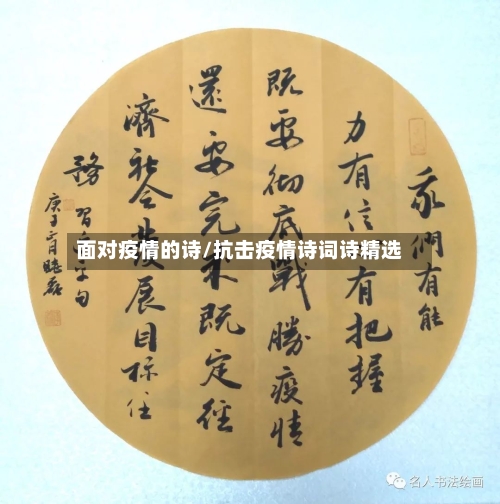 我們有能
力有信心有把握
既要彻底戰勝疫情
還要完成既定經
濟社会發展目标任
務
庚子二月
面对疫情的诗/抗击疫情诗词诗精选
名人书法绘画